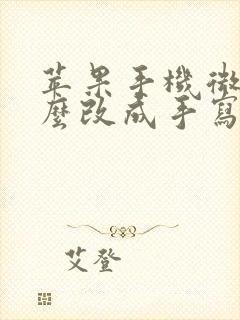 苹果手機微
麼改成手寫
艾登